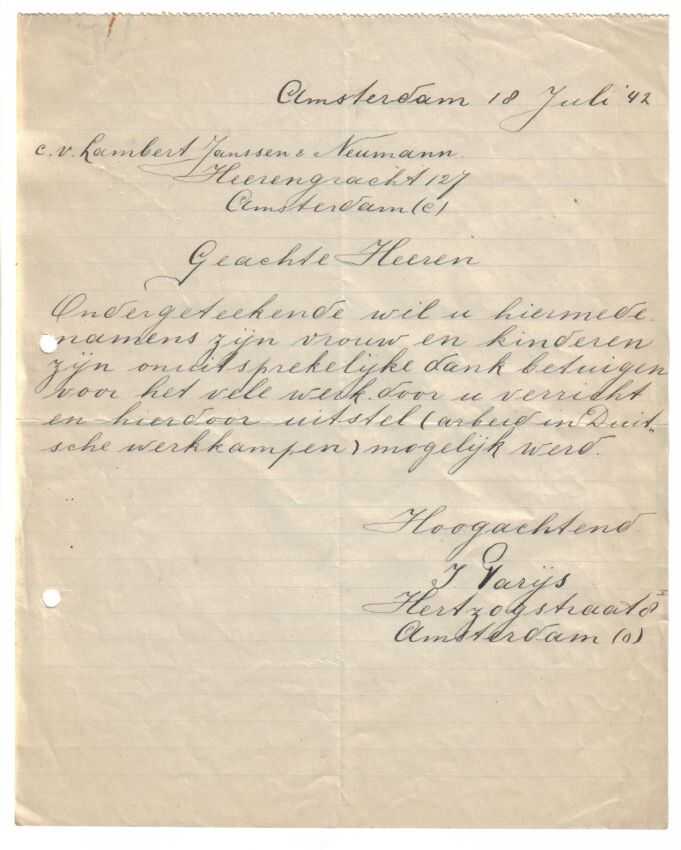 Amsterdam 18 Juli '42
c.v. Lambert Janssen & Neumann.
Heerengracht 127
Amsterdam (C)
Geachte Heeren
Ondergeteekende wil u hiermede
namens zijn vrouw en kinderen
zijn onuitsprekelijke dank betuigen
voor het vele werk door u verricht
en hierdoor uitstel (arbeid in Duit„
sche werkkampen) mogelijk werd.
Hoogachtend
J Parijs
Hertzogstraat 8 I
Amsterdam (O)